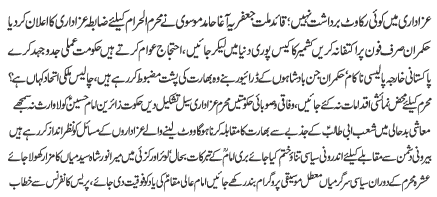 عزاداری میں کوئی رکاوٹ برداشت نہیں؛ قائد ملت جعفریہ آغا حامد موسوی نے محرم الحرام کیلئے ضابطہ عزاداری کا اعلان کر دیا
حکمران صرف فون پر اکتفا نہ کریں کشمیر کا کیس پوری دنیا میں لیکر جائیں، احتجاج عوام کرتے ہیں حکومت عملی جدوجہد کرے
پاکستانی خارجہ پالیسی ناکام؛ حکمران جن بادشاہوں کے ڈرائیور بنے وہ بھارت کی پشت مضبوط کر رہے ہیں، چالیس ملکی اتحاد کہاں ہے؟
محرم کیلئے محض نمائشی اقدامات نہ کئے جائیں، وفاقی و صوبائی حکومتیں محرم عزاداری سیل تشکیل دیں زائرین امام حسینؑ کو لاوارث نہ سمجھے
معاشی بدحالی میں شعب ابی طالبؑ کے جذبے سے بھارت کا مقابلہ کرنا ہوگا ووٹ لینے والے عزاداروں کے مسائل کو نظر انداز کر رہے ہیں
بیرونی دشمن سے مقابلے کیلئے اندرونی سیاسی تناؤ ختم کیا جائے بری امامؒ کے تبرکات بحال، لوئر اورکزئی میں میر انور شاہ سید میاں کا مزار کھولا جائے
عشرہ محرم کے دوران سیاسی سرگرمیاں معطل موسیقی پروگرام بند رکھے جائیں امام عالی مقامؑ کی یاد کو فوقیت دی جائے، پریس کانفرنس سے خطاب